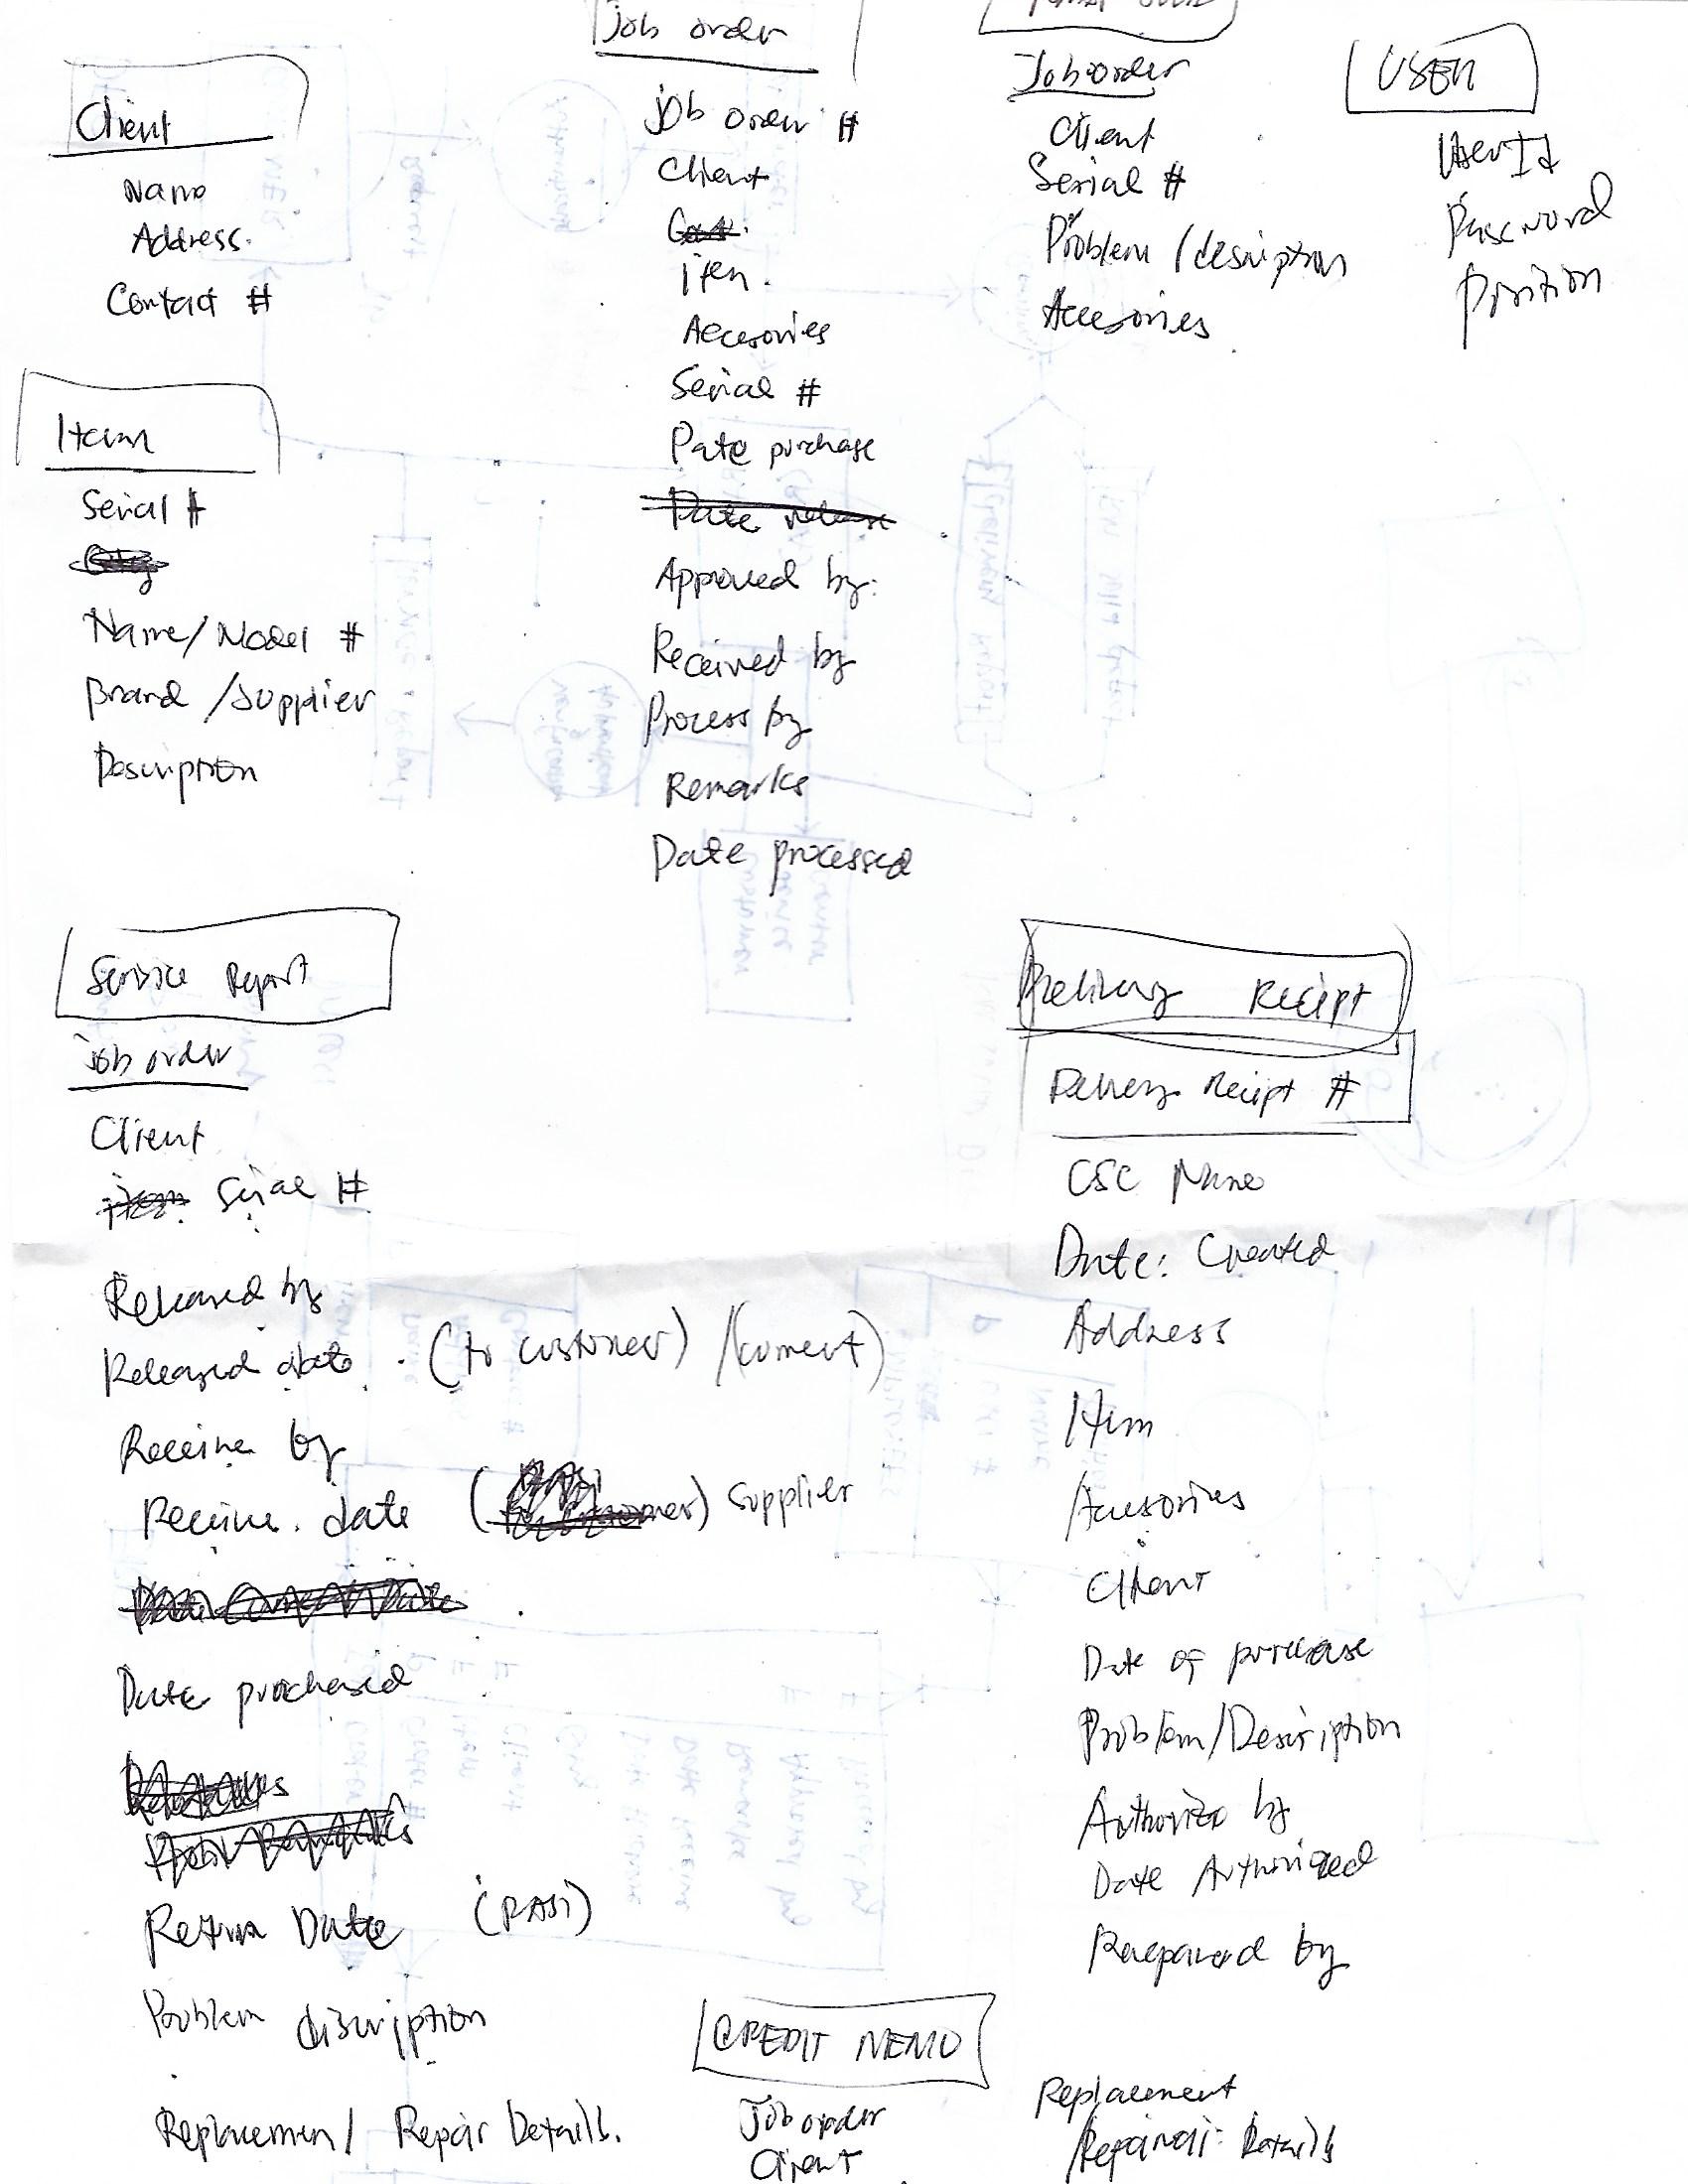 Client
Name
Address.
Contact #
Item
Serial #
Name/Model #
Brand /Supplier
Description
Job order
Job order #
Client
item.
Accesories
Serial #
Date purchase
Date release
Approved by:
Received by
Process by
Remarks
Date processed
Joborder
Client
Serial #
Problem /desription
Accesories
USER
UserId
Password
Position
Service Report
job order
Client
item. Seriae #
Released by
Released date . (to customer) /(current)
Receive by
Receive. date ( ) Supplier
Date purchased
Return Date (RASI)
Problem discription
Replacemen/ Repair Details.
Delivery Recipt
Delivery Recipt #
CSC Name
Date: Created
Address
Item
Accesories
Client
Date of purchase
Problem/Description
Authorize by
Date Authorized
Prepared by
CREDIT MEMO
Job order
Client
Replacement
/Repair: Details